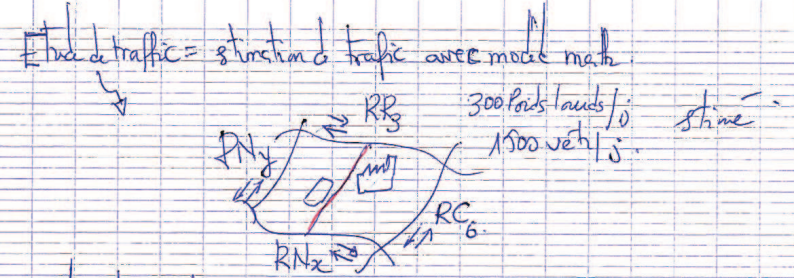 Etude de traffic = stimation de trafic avec model math.
RR3 300 Poids lourds/j stimé
RNy 1500 véh/j.
RC6.
RNx